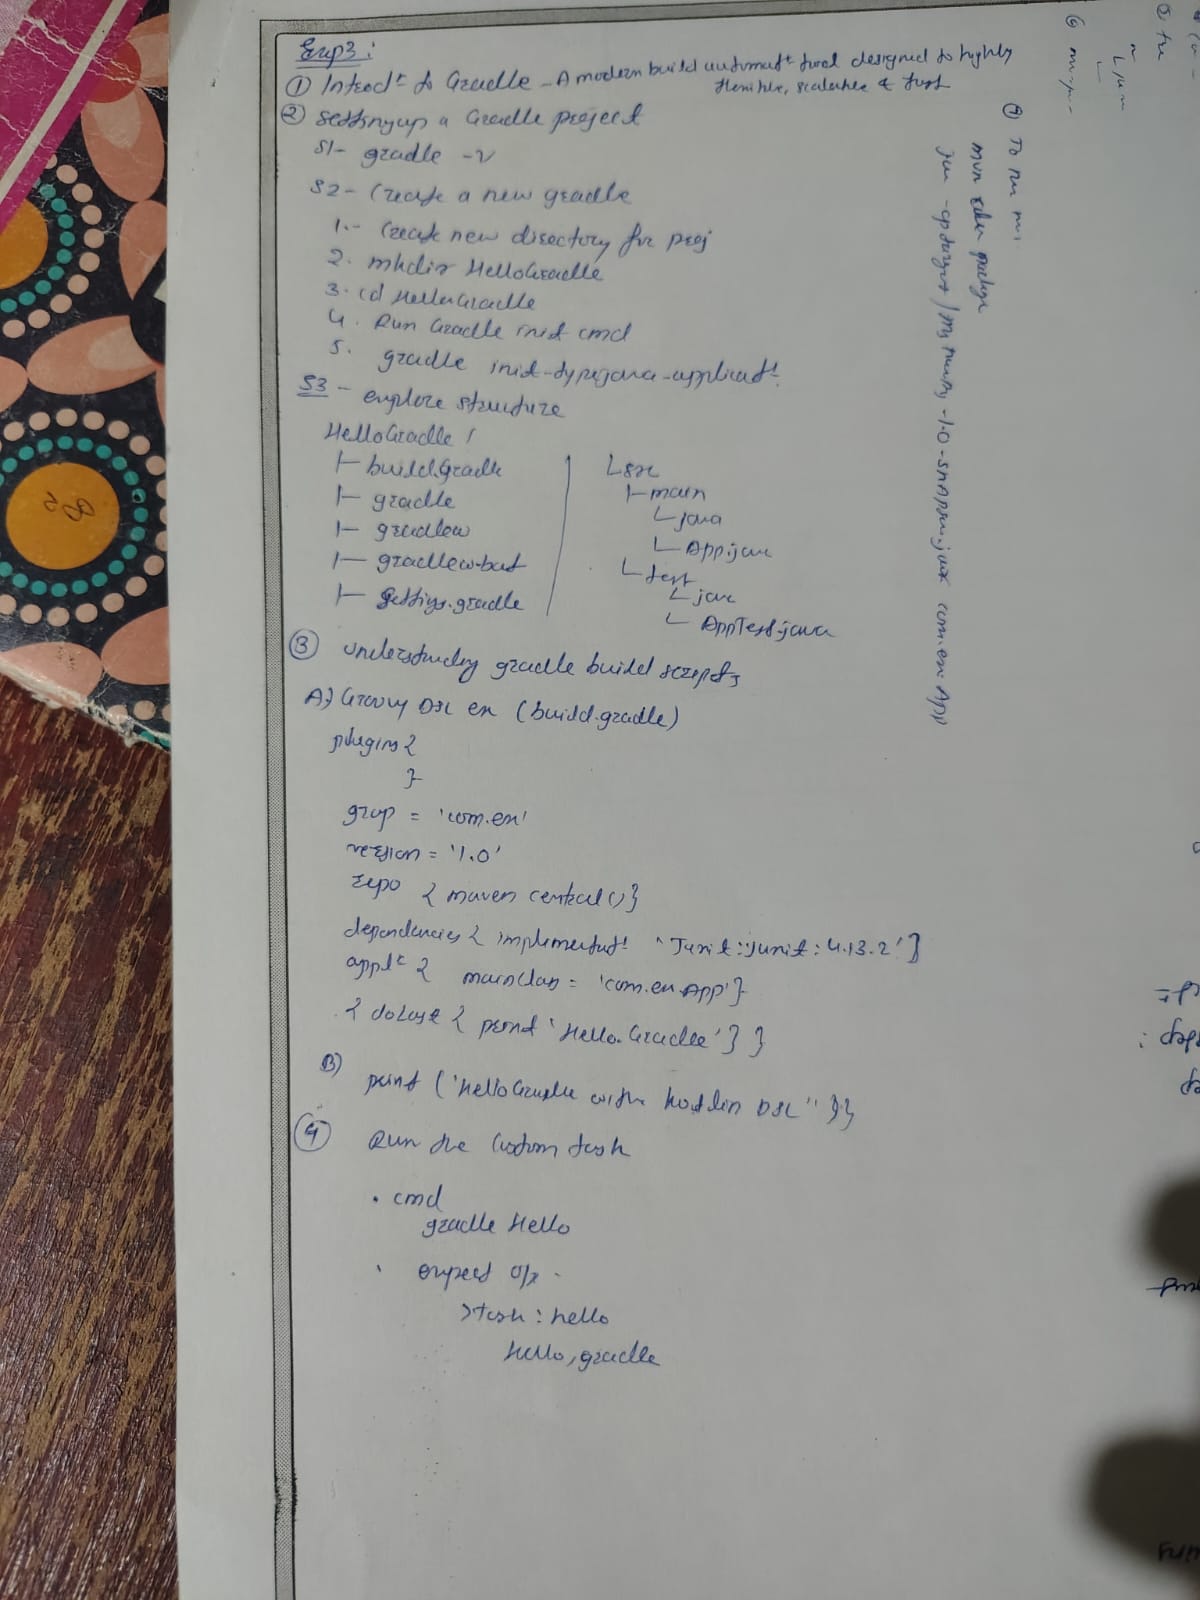 Exp3:
① Introdⁿ to Gradle - A modern build automatⁿ tool designed to highly
flexible, scalable & fast
② Setting up a Gradle project
S1- gradle -v
S2- Create a new gradle
1.- Create new directory for proj
2. mkdir HelloGradle
3. cd HelloGradle
4. Run Gradle init cmd
5. gradle init-type java-applicatⁿ
S3 - explore structure
HelloGradle /
├ build.gradle
├ gradle
├ gradlew
├ gradlew.bat
├ settings.gradle
└ src
├ main
└ java
└ App.java
└ test
└ java
└ AppTest.java
③ Understanding gradle build scripts
A) Groovy DSL ex (build.gradle)
plugins {
}
group = 'com.ex'
version = '1.0'
repo { maven central() }
dependencies { implementatⁿ 'Junit:junit:4.13.2' }
applⁿ { mainClass = 'com.ex.App' }
{ doLast { print 'Hello Gradle' } }
B)
print ('Hello Gradle with kotlin DSL" } }
④ Run the Custom task
• cmd
gradle Hello
• expect o/p -
>task : hello
Hello, gradle
⑦ To run
mvn clean package
com.ex.App